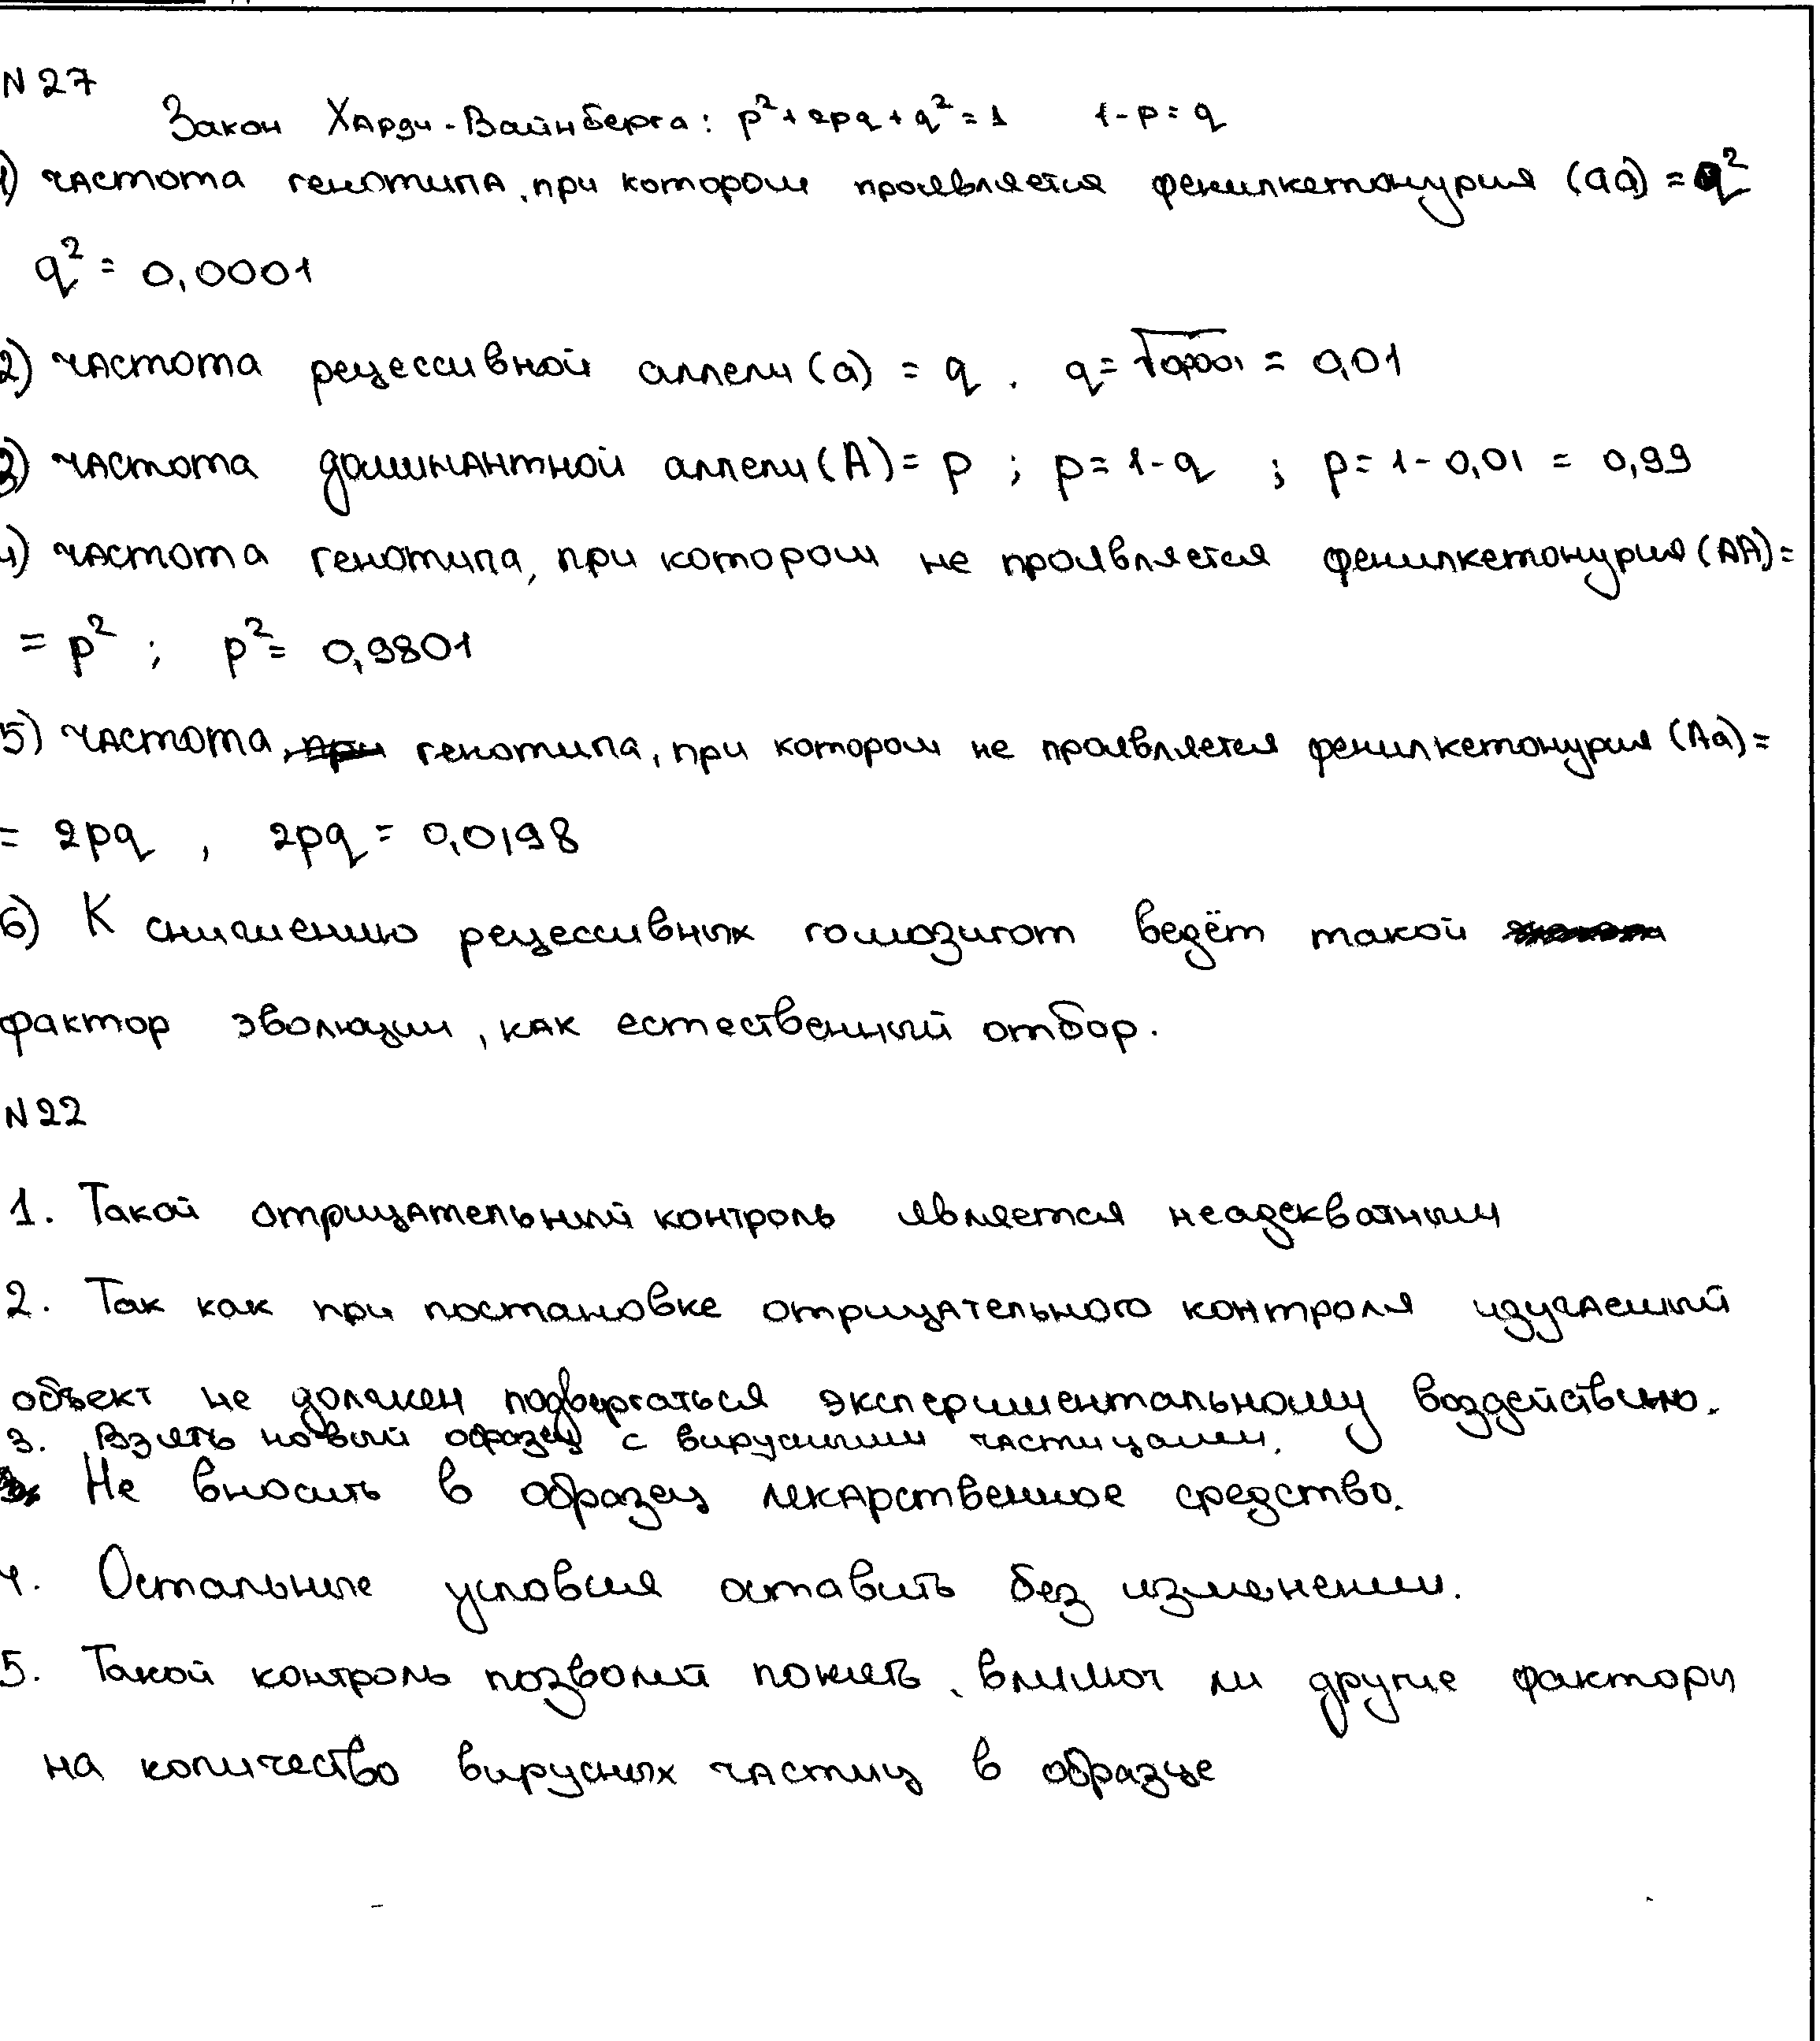 N 27
Закон Харди-Вайнберга: p²+2pq+q²=1 1-p=q
1) частота генотипа, при котором проявляется фенилкетонурия (aa) = q²
q² = 0,0001
2) частота рецессивной аллели (a) = q. q= √0,0001 = 0,01
3) частота доминантной аллели (A) = p ; p= 1-q ; p= 1-0,01 = 0,99
4) частота генотипа, при котором не проявляется фенилкетонурия (AA)=
= p² ; p²= 0,9801
5) частота генотипа, при котором не проявляется фенилкетонурия (Aa)=
= 2pq , 2pq = 0,0198
6) К снижению рецессивных гомозигот ведёт такой
фактор эволюции, как естественный отбор.
N 22
1. Такой отрицательный контроль является неадекватным
2. Так как при постановке отрицательного контроля изучаемый
объект не должен подвергаться экспериментальному воздействию.
3. Взять новый образец с вирусными частицами.
Не вносить в образец лекарственное средство.
4. Остальные условия оставить без изменении.
5. Такой контроль позволит понять, влияют ли другие факторы
на количество вирусных частиц в образце